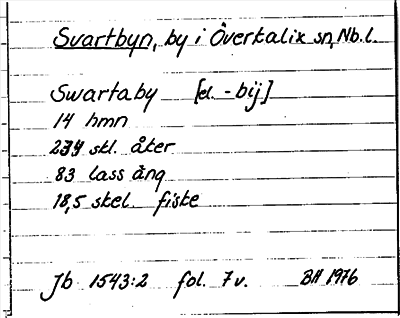 Svartbyn, by i Överkalix sn, Nb. l.
Swartaby [el. -bij]
14 hmn
234 skl. åker
83 lass äng
18,5 skel. fiske
Jb 1543:2 fol. 7v. BH 1976